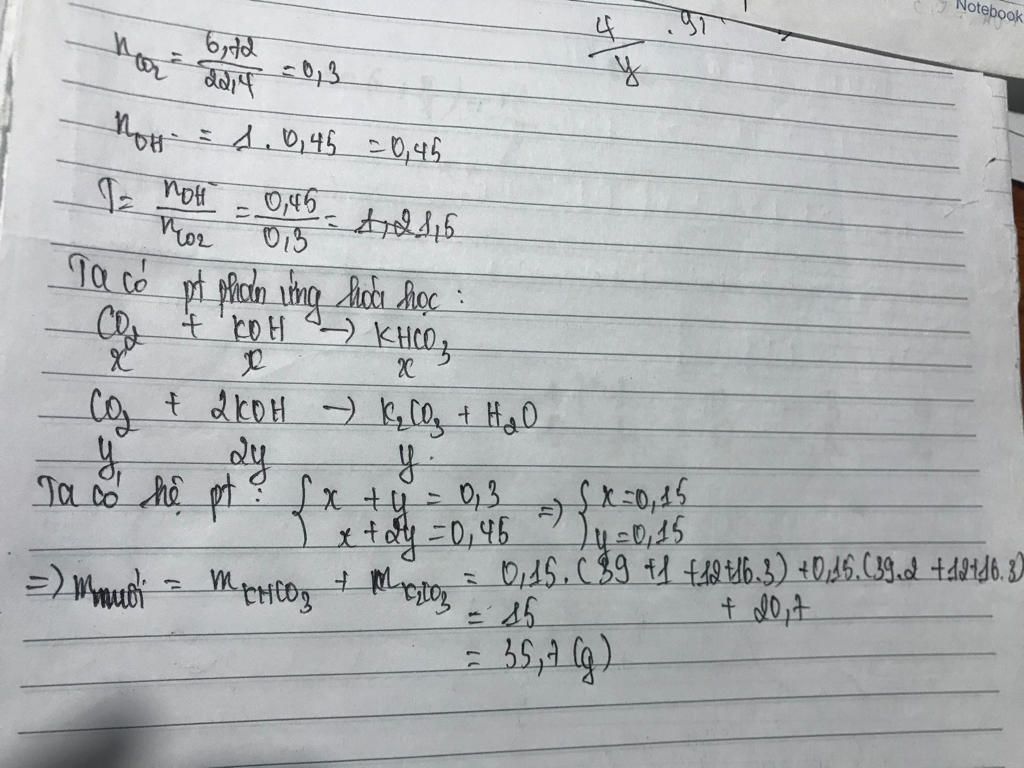 Notebook
4/y . 91
n_CO2 = 6,72/22,4 = 0,3
n_OH- = 1 . 0,45 = 0,45
T = nOH-/nCO2 = 0,45/0,3 = 1,2 1,5
Ta có pt phản ứng hoá học :
CO2 + KOH → KHCO3
x x x
CO2 + 2KOH → K2CO3 + H2O
y 2y y.
Ta có hệ pt : { x + y = 0,3 => { x = 0,15
x + 2y = 0,45 y = 0,15
=> m muối = m KHCO3 + m K2CO3 = 0,15.(39 +1 +12+16.3) +0,15.(39.2 +12+16.3)
= 15 + 20,7
= 35,7 (g)